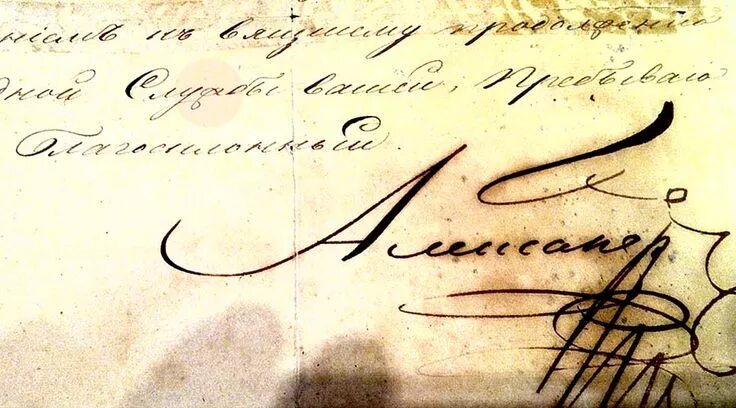 ніемъ къ вящшему продолженію
дной Службы вашей, Пребываю
Благосклонный.
Александръ